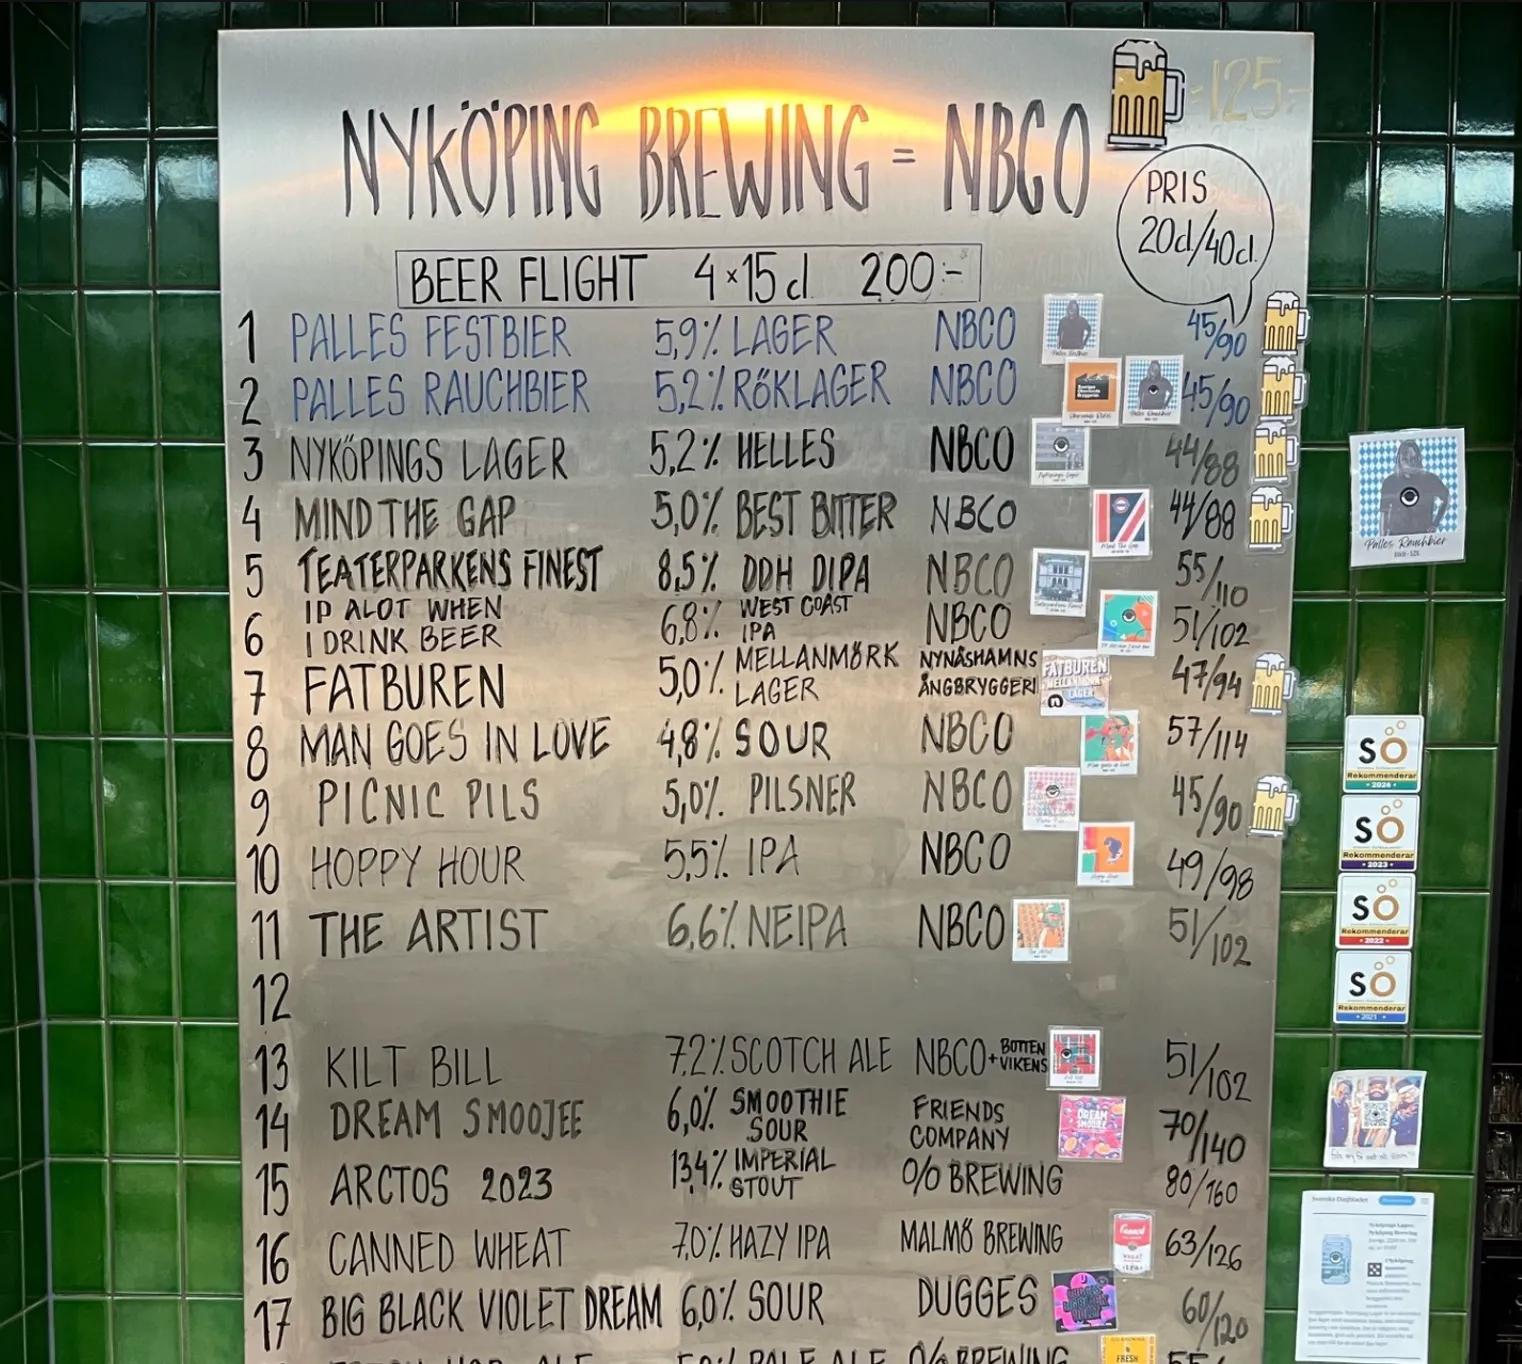 =125:-
NYKÖPING BREWING = NBCO
PRIS
20cl/40cl.
BEER FLIGHT 4×15cl 200:-
1 PALLES FESTBIER 5,9% LAGER NBCO 45/90
2 PALLES RAUCHBIER 5,2% RÖKLAGER NBCO 45/90
3 NYKÖPINGS LAGER 5,2% HELLES NBCO 44/88
4 MIND THE GAP 5,0% BEST BITTER NBCO 44/88
5 TEATERPARKENS FINEST 8,5% DDH DIPA NBCO 55/110
6 IP ALOT WHEN I DRINK BEER 6,8% WEST COAST IPA NBCO 51/102
7 FATBUREN 5,0% MELLANMÖRK LAGER NYNÄSHAMNS ÅNGBRYGGERI 47/94
FATBUREN
MELLANMÖRK
LAGER
8 MAN GOES IN LOVE 4,8% SOUR NBCO 57/114
9 PICNIC PILS 5,0% PILSNER NBCO 45/90
10 HOPPY HOUR 5,5% IPA NBCO 49/98
11 THE ARTIST 6,6% NEIPA NBCO 51/102
12
13 KILT BILL 7.2% SCOTCH ALE NBCO + BOTTEN VIKENS 51/102
14 DREAM SMOOJEE 6,0% SMOOTHIE SOUR FRIENDS COMPANY 70/140
DREAM
SMOOJEE
15 ARCTOS 2023 13,4% IMPERIAL STOUT O/O BREWING 80/160
16 CANNED WHEAT 7,0% HAZY IPA MALMÖ BREWING 63/126
17 BIG BLACK VIOLET DREAM 6,0% SOUR DUGGES 60/120
FRESH HOP ALE 5,0% PALE ALE O/O BREWING 55/
FRESH
Palles Rauchbier
SÖ
Rekommenderar
• 2024 •
SÖ
Rekommenderar
• 2023 •
SÖ
Rekommenderar
• 2022 •
SÖ
Rekommenderar
• 2021 •
Svenska Dagbladet
Nyköpings Lager,
Nyköping Brewing